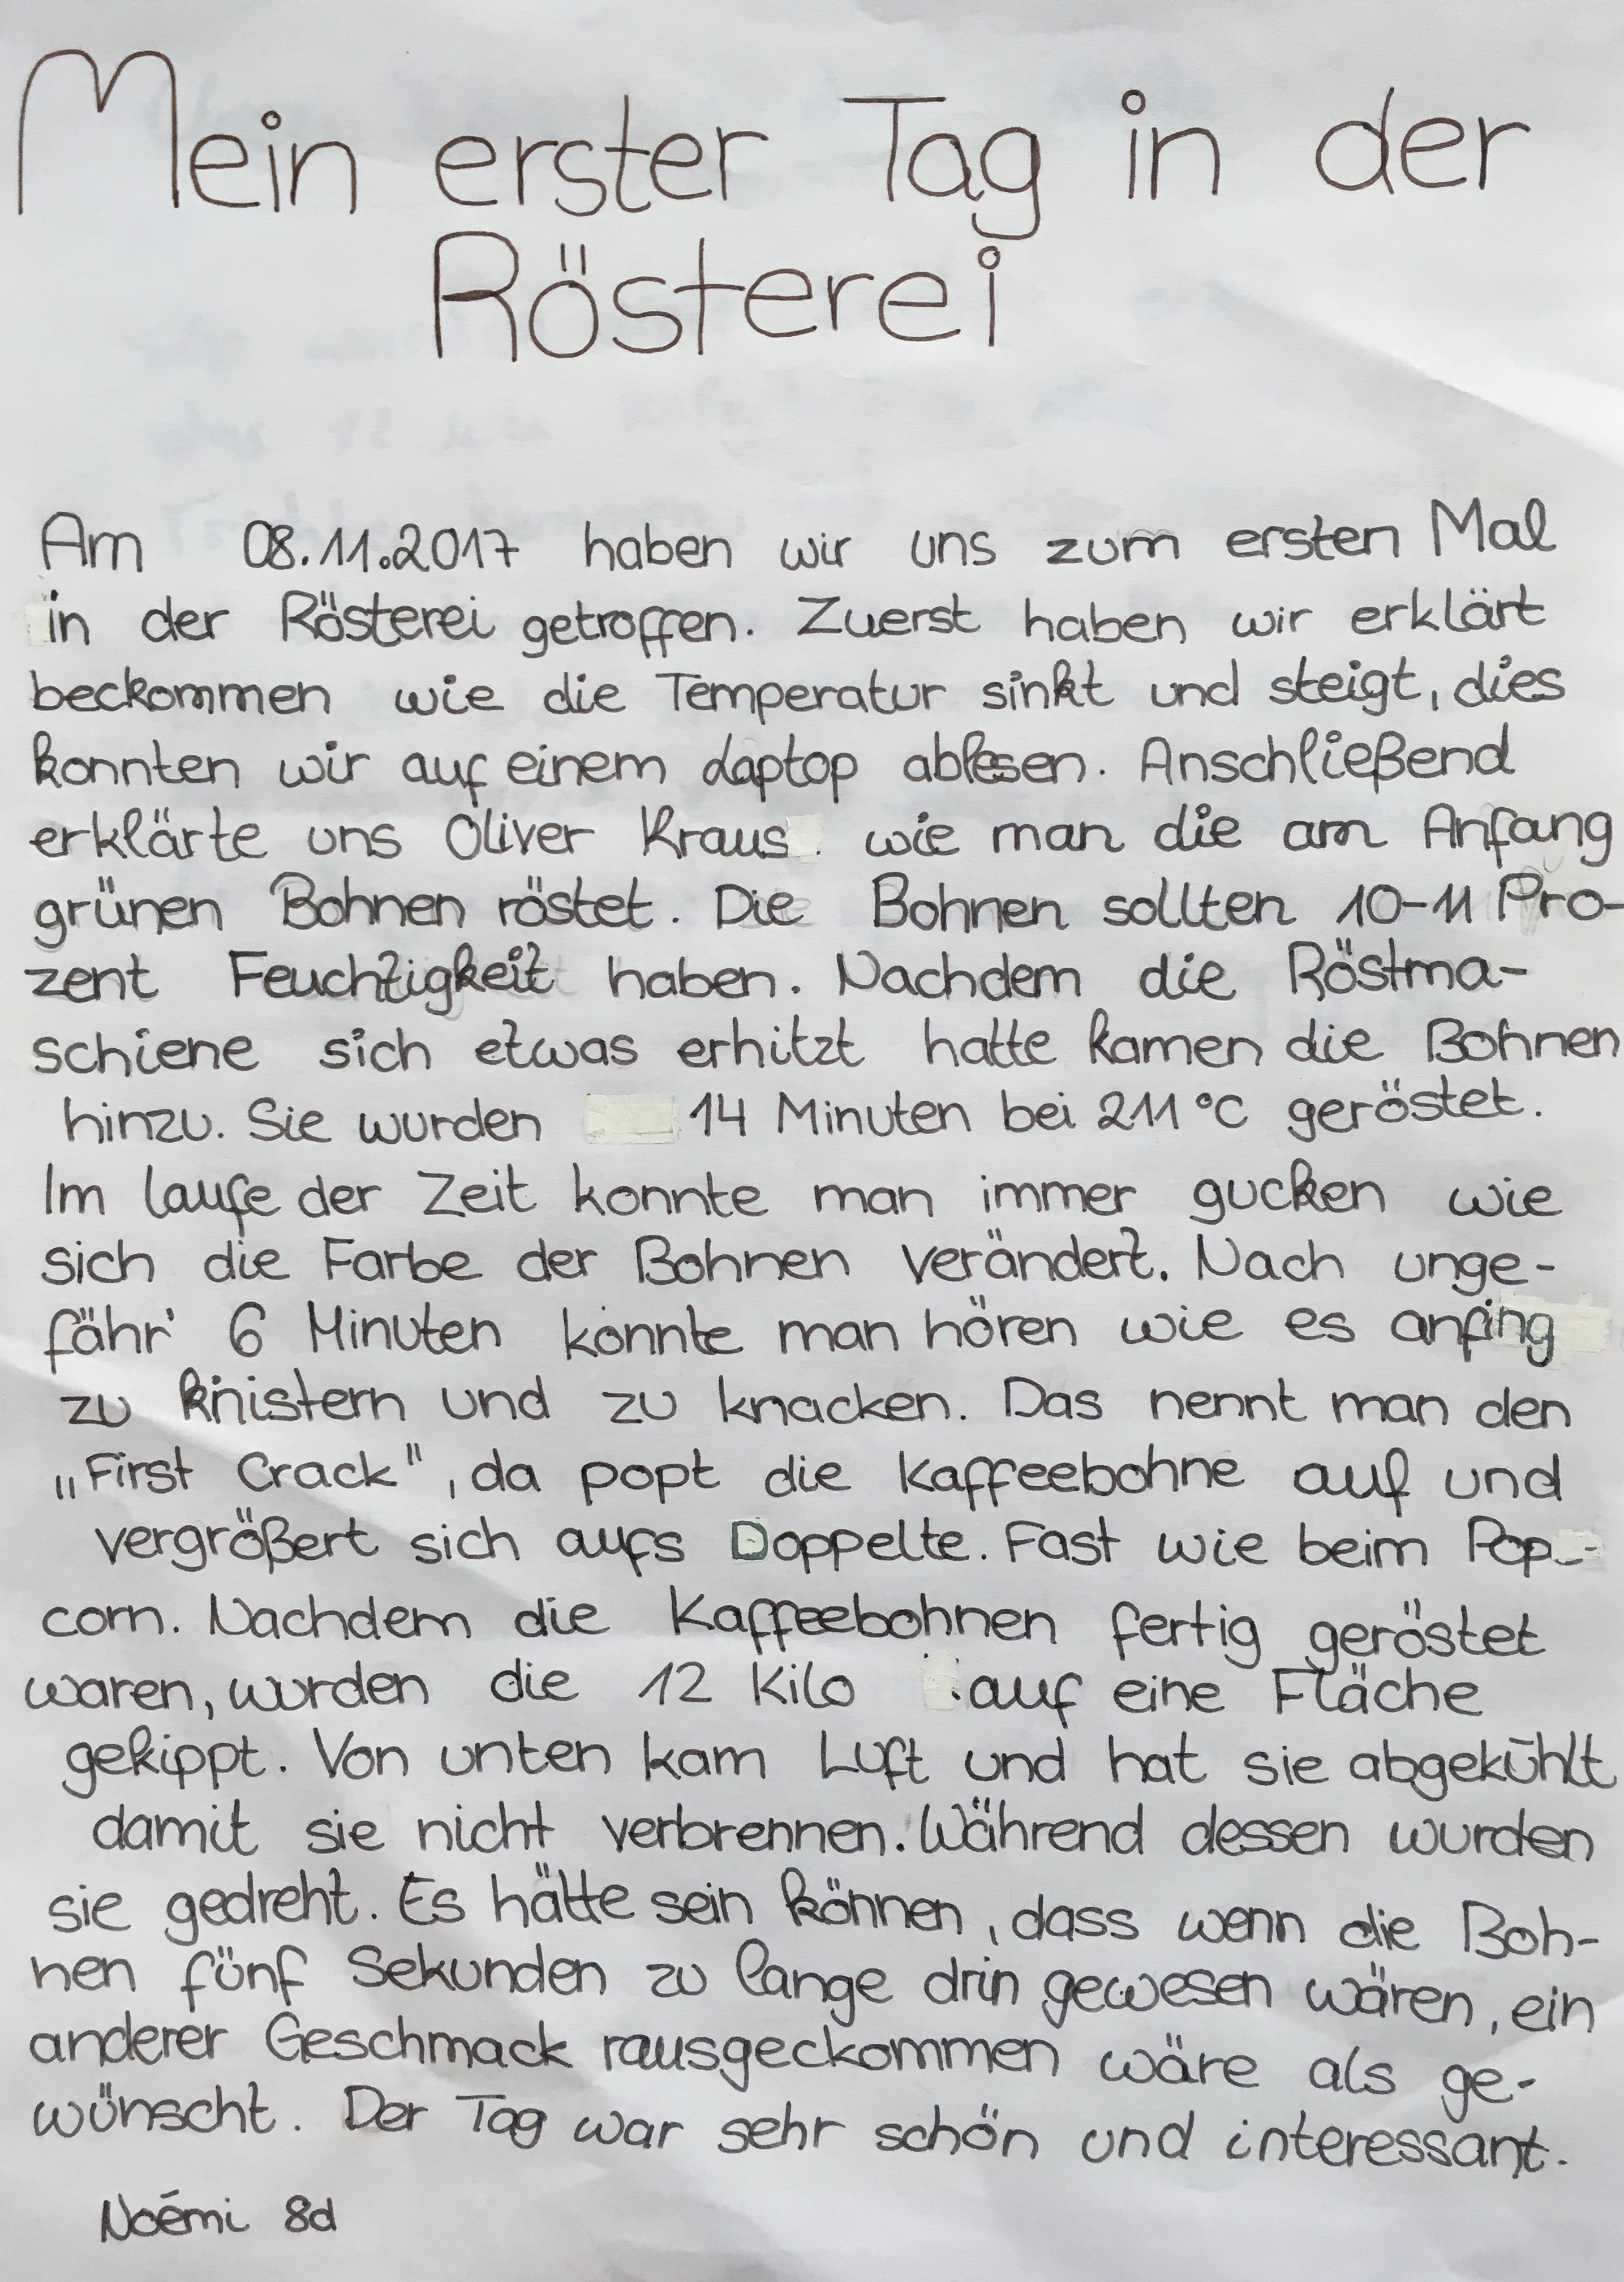 Mein erster Tag in der
Rösterei
Am 08.11.2017 haben wir uns zum ersten Mal
in der Rösterei getroffen. Zuerst haben wir erklärt
beckommen wie die Temperatur sinkt und steigt, dies
konnten wir auf einem Laptop ablesen. Anschließend
erklärte uns Oliver Kraus wie man die am Anfang
grünen Bohnen röstet. Die Bohnen sollten 10-11 Pro-
zent Feuchtigkeit haben. Nachdem die Röstma-
schiene sich etwas erhitzt hatte kamen die Bohnen
hinzu. Sie wurden 14 Minuten bei 211 °C geröstet.
Im laufe der Zeit konnte man immer gucken wie
sich die Farbe der Bohnen verändert. Nach unge-
fähr 6 Minuten konnte man hören wie es anfing
zu knistern und zu knacken. Das nennt man den
„First Crack", da popt die Kaffeebohne auf und
vergrößert sich aufs Doppelte. Fast wie beim Pop-
corn. Nachdem die Kaffeebohnen fertig geröstet
waren, wurden die 12 Kilo auf eine Fläche
gekippt. Von unten kam Luft und hat sie abgekühlt
damit sie nicht verbrennen. Während dessen wurden
sie gedreht. Es hätte sein können, dass wenn die Boh-
nen fünf Sekunden zu lange drin gewesen wären, ein
anderer Geschmack rausgeckommen wäre als ge-
wünscht. Der Tag war sehr schön und interessant.
Noémi 8d